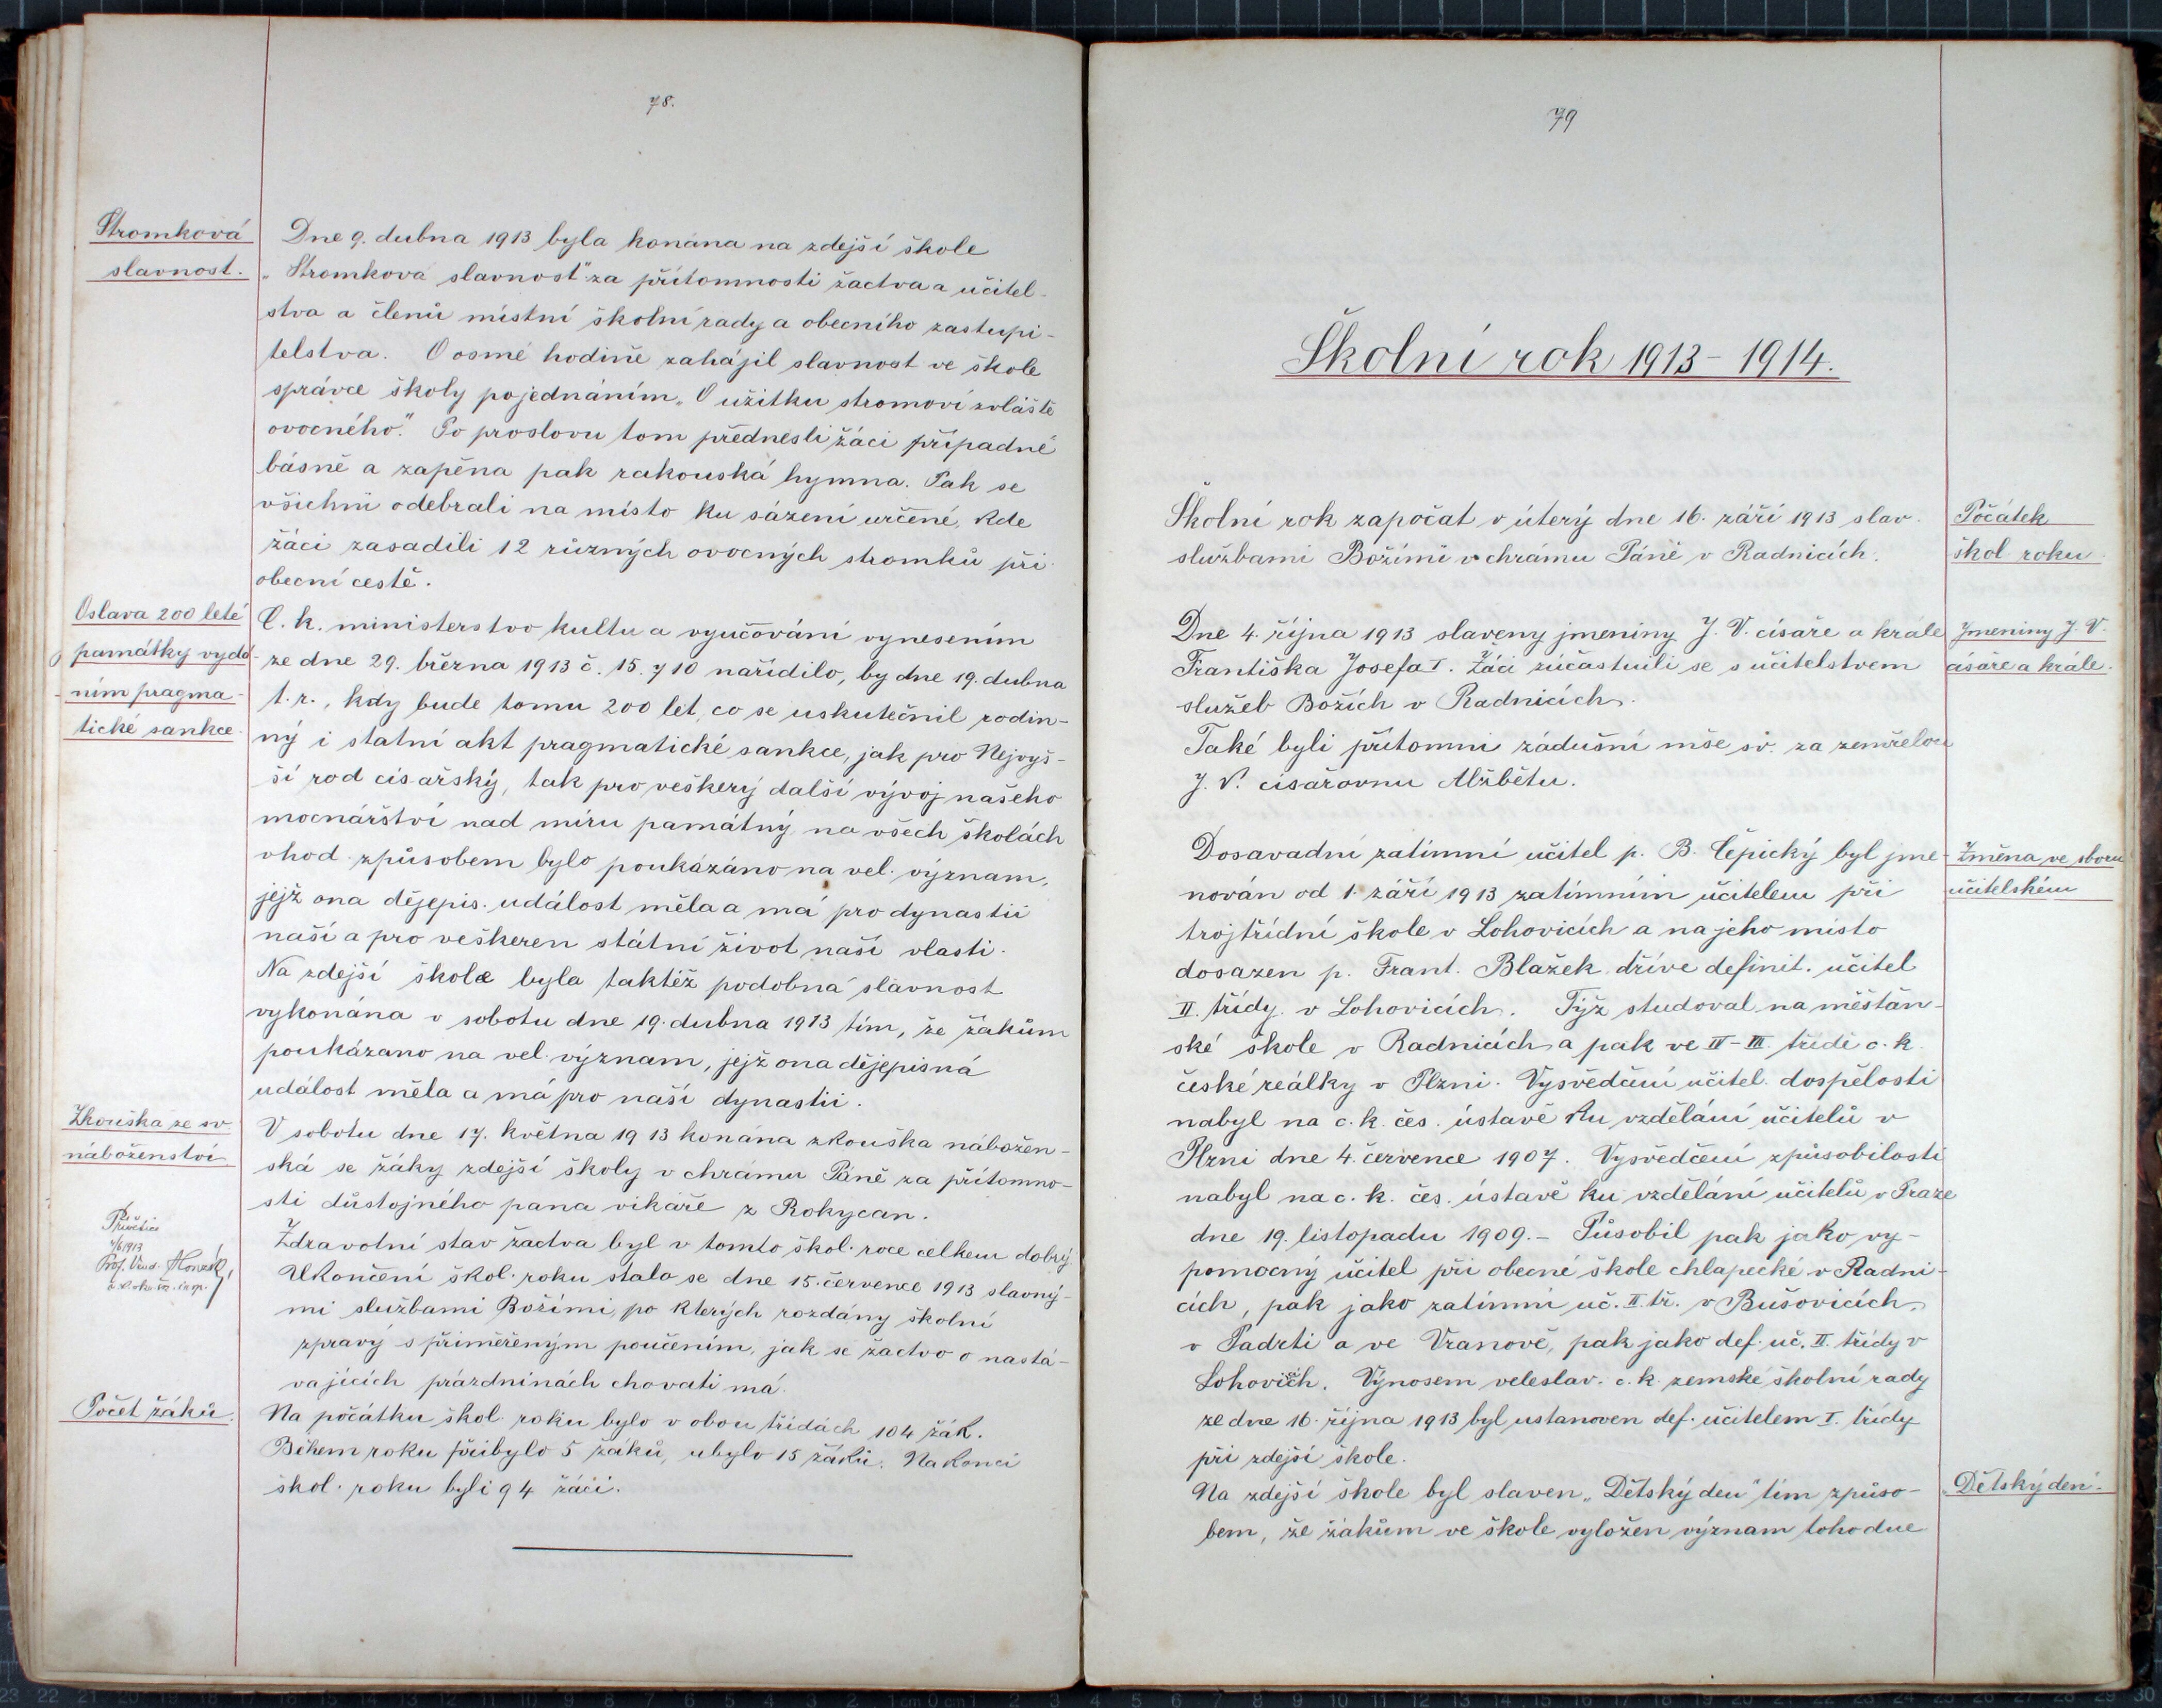 78.
Stromková
slavnost.
Dne 9. dubna 1913 byla konána na zdejší škole
„Stromková slavnost" za přítomnosti žactva a učitel-
stva a členů místní školní rady a obecního zastupi-
telstva. O osmé hodině zahájil slavnost ve škole
správce školy pojednáním „O užitku stromoví zvláště
ovocného". Po proslovu tom přednesli žáci případné
básně a zapěna pak rakouská hymna. Pak se
všichni odebrali na místo ku sázení určené, kde
žáci zasadili 12 různých ovocných stromků při
obecní cestě.
Oslava 200 leté
památky vydá-
ním pragma-
tické sankce.
C. k. ministerstvo kultu a vyučování vynesením
ze dne 29. března 1913 č. 15.710 nařídilo, by dne 19. dubna
t. r., kdy bude tomu 200 let, co se uskutečnil rodin-
ný i statní akt pragmatické sankce, jak pro Nejvyš-
ší rod císařský, tak pro veškerý další vývoj našeho
mocnářství nad míru památný na všech školách
vhod. způsobem bylo poukázáno na vel. význam,
jejž ona dějepis. událost měla a má pro dynastii
naší a pro veškeren státní život naší vlasti.
Na zdejší škole byla taktéž podobná slavnost
vykonána v sobotu dne 19. dubna 1913 tím, že žákům
poukázano na vel. význam, jejž ona dějepisná
událost měla a má pro naší dynastii.
Zkouška ze sv.
náboženství
V sobotu dne 17. května 1913 konána zkouška nábožen-
ská se žáky zdejší školy v chrámu Páně za přítomno-
sti důstojného pana vikáře z Rokycan.
Přívětice
4/6 1913
Prof. Vend. Honzík,
Zdravotní stav žactva byl v tomto škol. roce celkem dobrý.
Ukončení škol. roku stalo se dne 15. července 1913 slavný-
mi službami Božími, po kterých rozdány školní
zpravy s přiměřeným poučením, jak se žactvo o nastá-
vajících prázdninách chovati má.
Počet žáků.
Na počátku škol. roku bylo v obou třídách 104 žák.
Během roku přibylo 5 žáků, ubylo 15 žáků. Na konci
škol. roku byli 94 žáci.
79
Školní rok 1913-1914.
Školní rok započat v úterý dne 16. září 1913 slav.
službami Božími v chrámu Páně v Radnicích.
Počátek
škol. roku
Dne 4. října 1913 slaveny jmeniny J. V. císaře a krále
Františka Josefa I. Žáci zúčastnili se s učitelstvem
služeb Božích v Radnicích.
Také byli přítomni zádušní mše sv. za zemřelou
J. V. císařovnu Alžbětu.
Jmeniny J. V.
císaře a krále.
Dosavadní zatímní učitel p. B. Čepický byl jme-
nován od 1. září 1913 zatímním učitelem při
trojtřídní škole v Lohovicích a na jeho místo
dosazen p. Frant. Blažek dříve definit. učitel
II. třídy v Lohovicích. Týž studoval na měšťan-
ské škole v Radnicích a pak ve II-III. třídě c. k.
české reálky v Plzni. Vysvědčení učitel. dospělosti
nabyl na c. k. čes. ústavě ku vzdělání učitelů v
Plzni dne 4. července 1907. Vysvědčení způsobilosti
nabyl na c. k. čes. ústavě ku vzdělání učitelů v Praze
dne 19. listopadu 1909. - Působil pak jako vý-
pomocný učitel při obecné škole chlapecké v Radni-
cích, pak jako zatímní uč. II. tř. v Bušovicích,
v Padrti a ve Vranově, pak jako def. uč. II. třídy v
Lohovicích. Výnosem veleslav. c. k. zemské školní rady
ze dne 16. října 1913 byl ustanoven def. učitelem I. třídy
při zdejší škole.
Změna ve sboru
učitelském
Na zdejší škole byl slaven „Dětský den" tím způso-
bem, že žákům ve škole vyložen význam toho dne
„Dětský den".